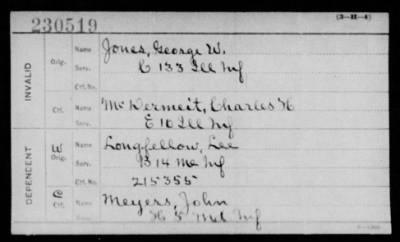 (3-H-4)
230519
INVALID
Orig. Name Jones, George W.
Serv. C 133 Ill Inf
Ctf. No.
Ctf. Name McDermeit, Charles H
Serv. E 10 Ill Inf
DEPENDENT
W Orig. Name Longfellow, Lee
Serv. B 14 Me Inf
Ctf. No. 215355
C Ctf. Name Meyers, John
Serv. H 5 Md Inf